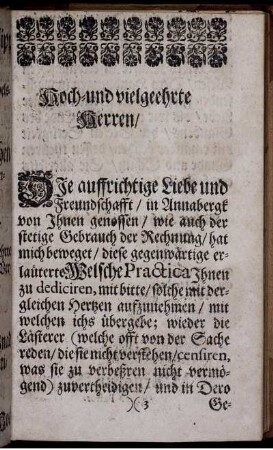 Hoch- und vielgeehrte
Herren/
DJe auffrichtige Liebe und
Freundschafft/ in Annabergk
von Jhnen genossen/ wie auch der
stetige Gebrauch der Rechnung/ hat
mich beweget/ diese gegenwärtige er-
läuterte Welsche Practica Jhnen
zu dediciren, mit bitte/ solche mit der-
gleichen Hertzen auffzunehmen/ mit
welchen ichs übergebe; wieder die
Lästerer (welche offt von der Sache
reden/ die sie nicht verstehen/ censiren,
was sie zu verbeßren nicht vermö-
gend) zuvertheidigen/ und in Dero
)( 3 Ge-